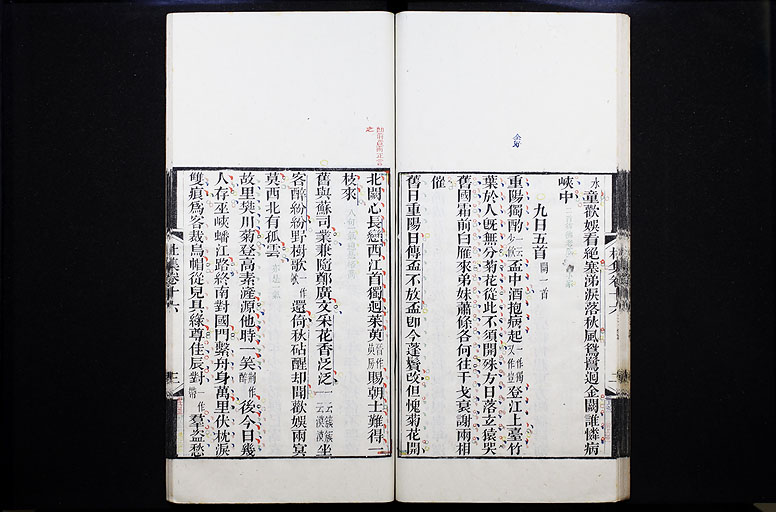 童歡娛看絶塞涕淚落秋風鴛鷺迴金闕誰憐病
峽中
九日五首 闕一首
重陽獨酌 盃中酒抱病起 登江上臺竹
葉於人既無分菊花從此不須開殊方日落玄猿哭
舊國霜前白雁來弟妹蕭條各何往干戈衰謝兩相
催
舊日重陽日傳盃不放盃即今蓬鬢改但愧菊花開
北闕心長戀西江首獨迴茱萸 賜朝士難得一
枝來
舊與蘇司業兼隨鄭廣文采花香泛泛 坐
客醉紛紛野樹歌 還倚秋砧醒却聞歡娛兩冥
莫西北有孤雲
故里樊川菊登高素滻源他時一笑 後今日幾
人存巫峽蟠江路終南對國門繫舟身萬里伏枕淚
雙痕為客裁烏帽從兒具綠尊佳辰對 羣盗愁
杜集卷十六
三